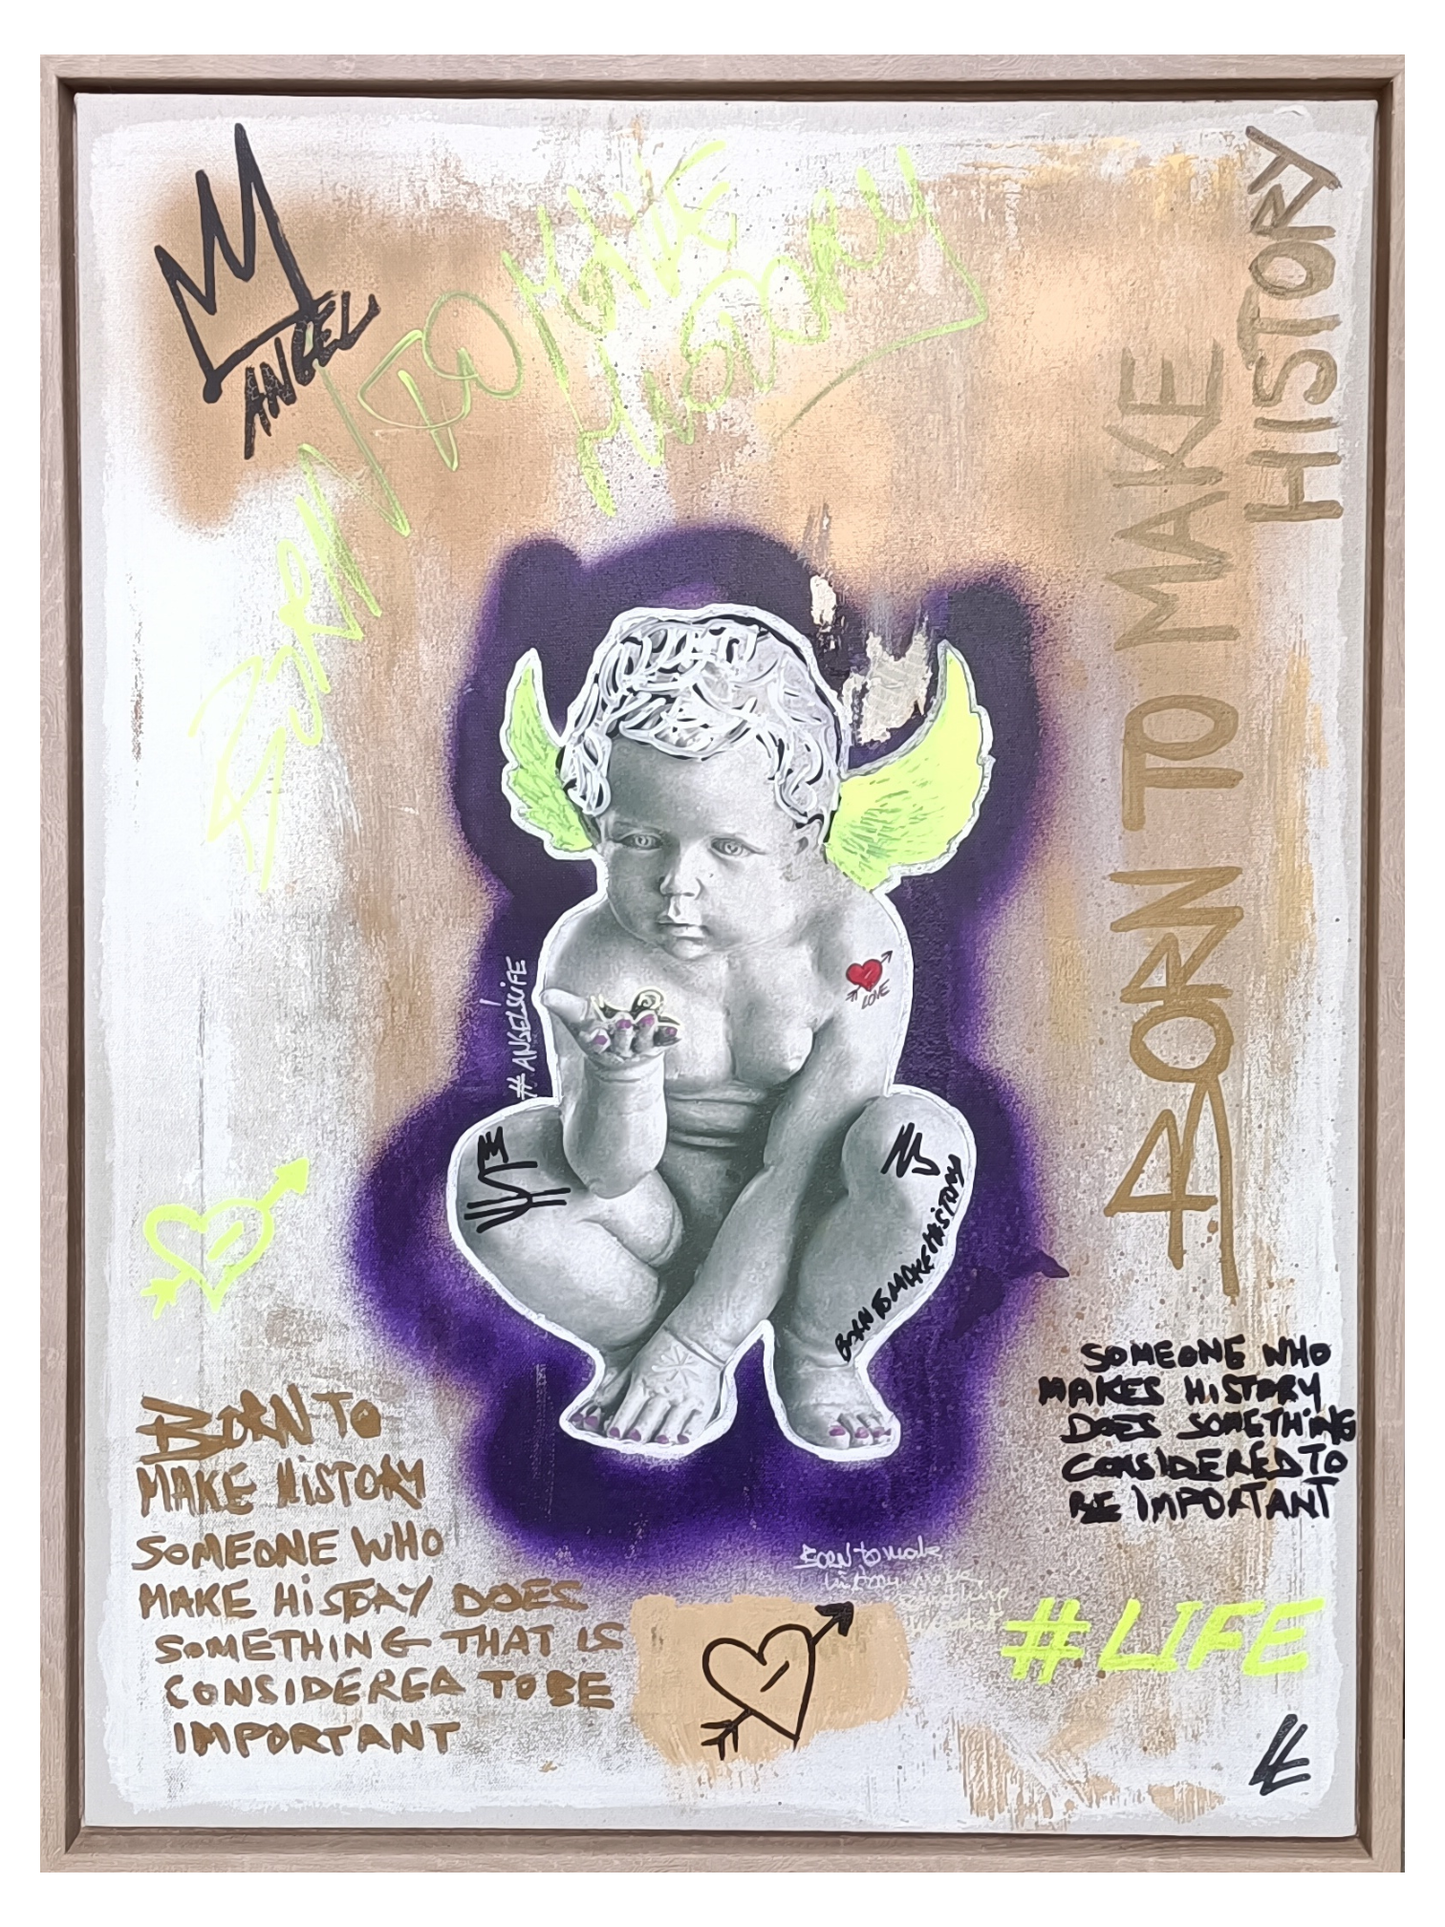 ANGEL
BORN TO MAKE
HISTORY
BORN TO MAKE
HISTORY
#ANGEL'SLIFE
LOVE
BORN TO MAKE HISTORY
SOMEONE WHO
MAKES HISTORY
DOES SOMETHING
CONSIDERED TO
BE IMPORTANT
BORN TO
MAKE HISTORY
SOMEONE WHO
MAKE HISTORY DOES
SOMETHING THAT IS
CONSIDERED TO BE
IMPORTANT
BORN to make
history
#LIFE
LE